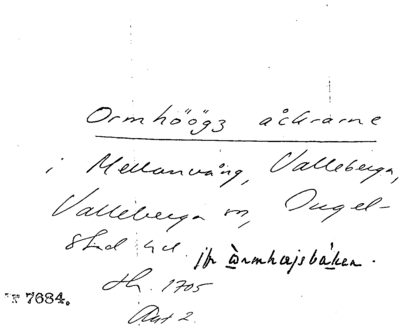 Ormhöögz åckrarne
i Mellanvång, Valleberga,
Valleberga sn, Ingel-
stad hd. jfr òrmhøjsbáken.
Lh. 1705
Akt 2.
7684.